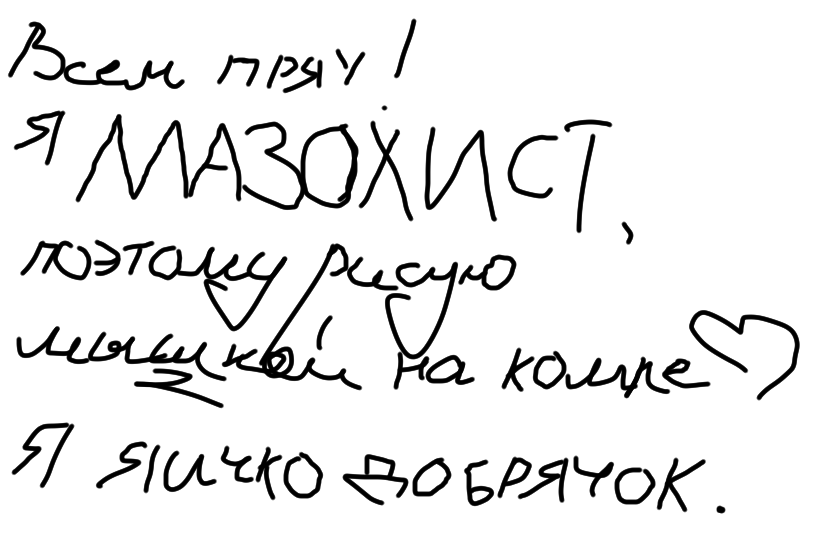 Всем пряч!
Я МАЗОХИСТ,
поэтому рисую
мышкой на компе
Я ЯИЧКО ДОБРЯЧОК.